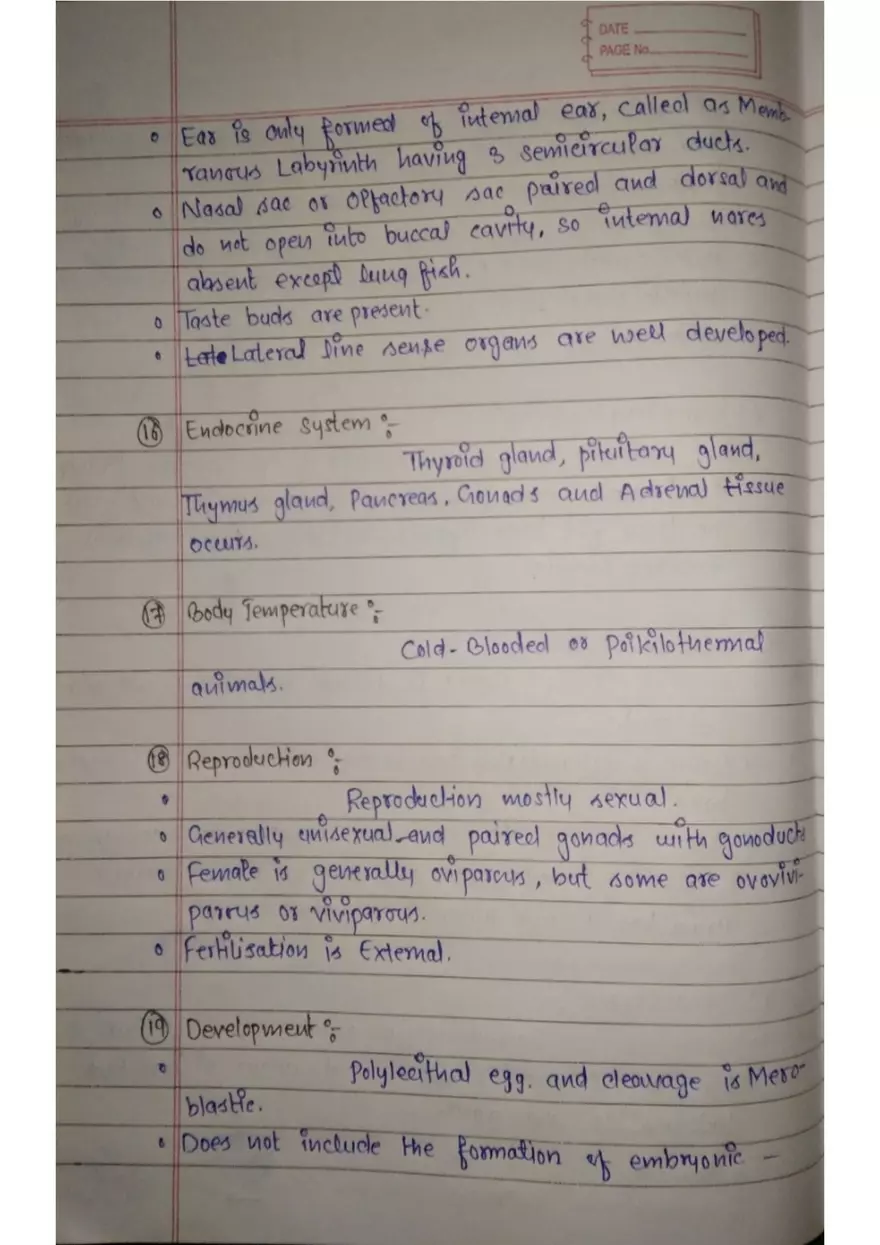 DATE
PAGE No.
Ear is only formed of internal ear, called as Memb-
ranous Labyrinth having 3 semicircular ducts.
Nasal sac or olfactory sac paired and dorsal and
do not open into buccal cavity, so internal nares
absent except lung fish.
Taste buds are present.
Late Lateral line sense organs are well developed.
(16) Endocrine system :-
Thyroid gland, pituitary gland,
Thymus gland, Pancreas, Gonads and Adrenal tissue
occurs.
(17) Body Temperature :-
Cold-Blooded or Poikilothermal
animals.
(18) Reproduction :-
Reproduction mostly sexual.
Generally unisexual and paired gonads with gonoducts
Female is generally oviparous, but some are ovovivi-
parous or viviparous.
Fertilisation is External.
(19) Development :-
Polylecithal egg. and cleavage is Mero-
blastic.
Does not include the formation of embryonic -